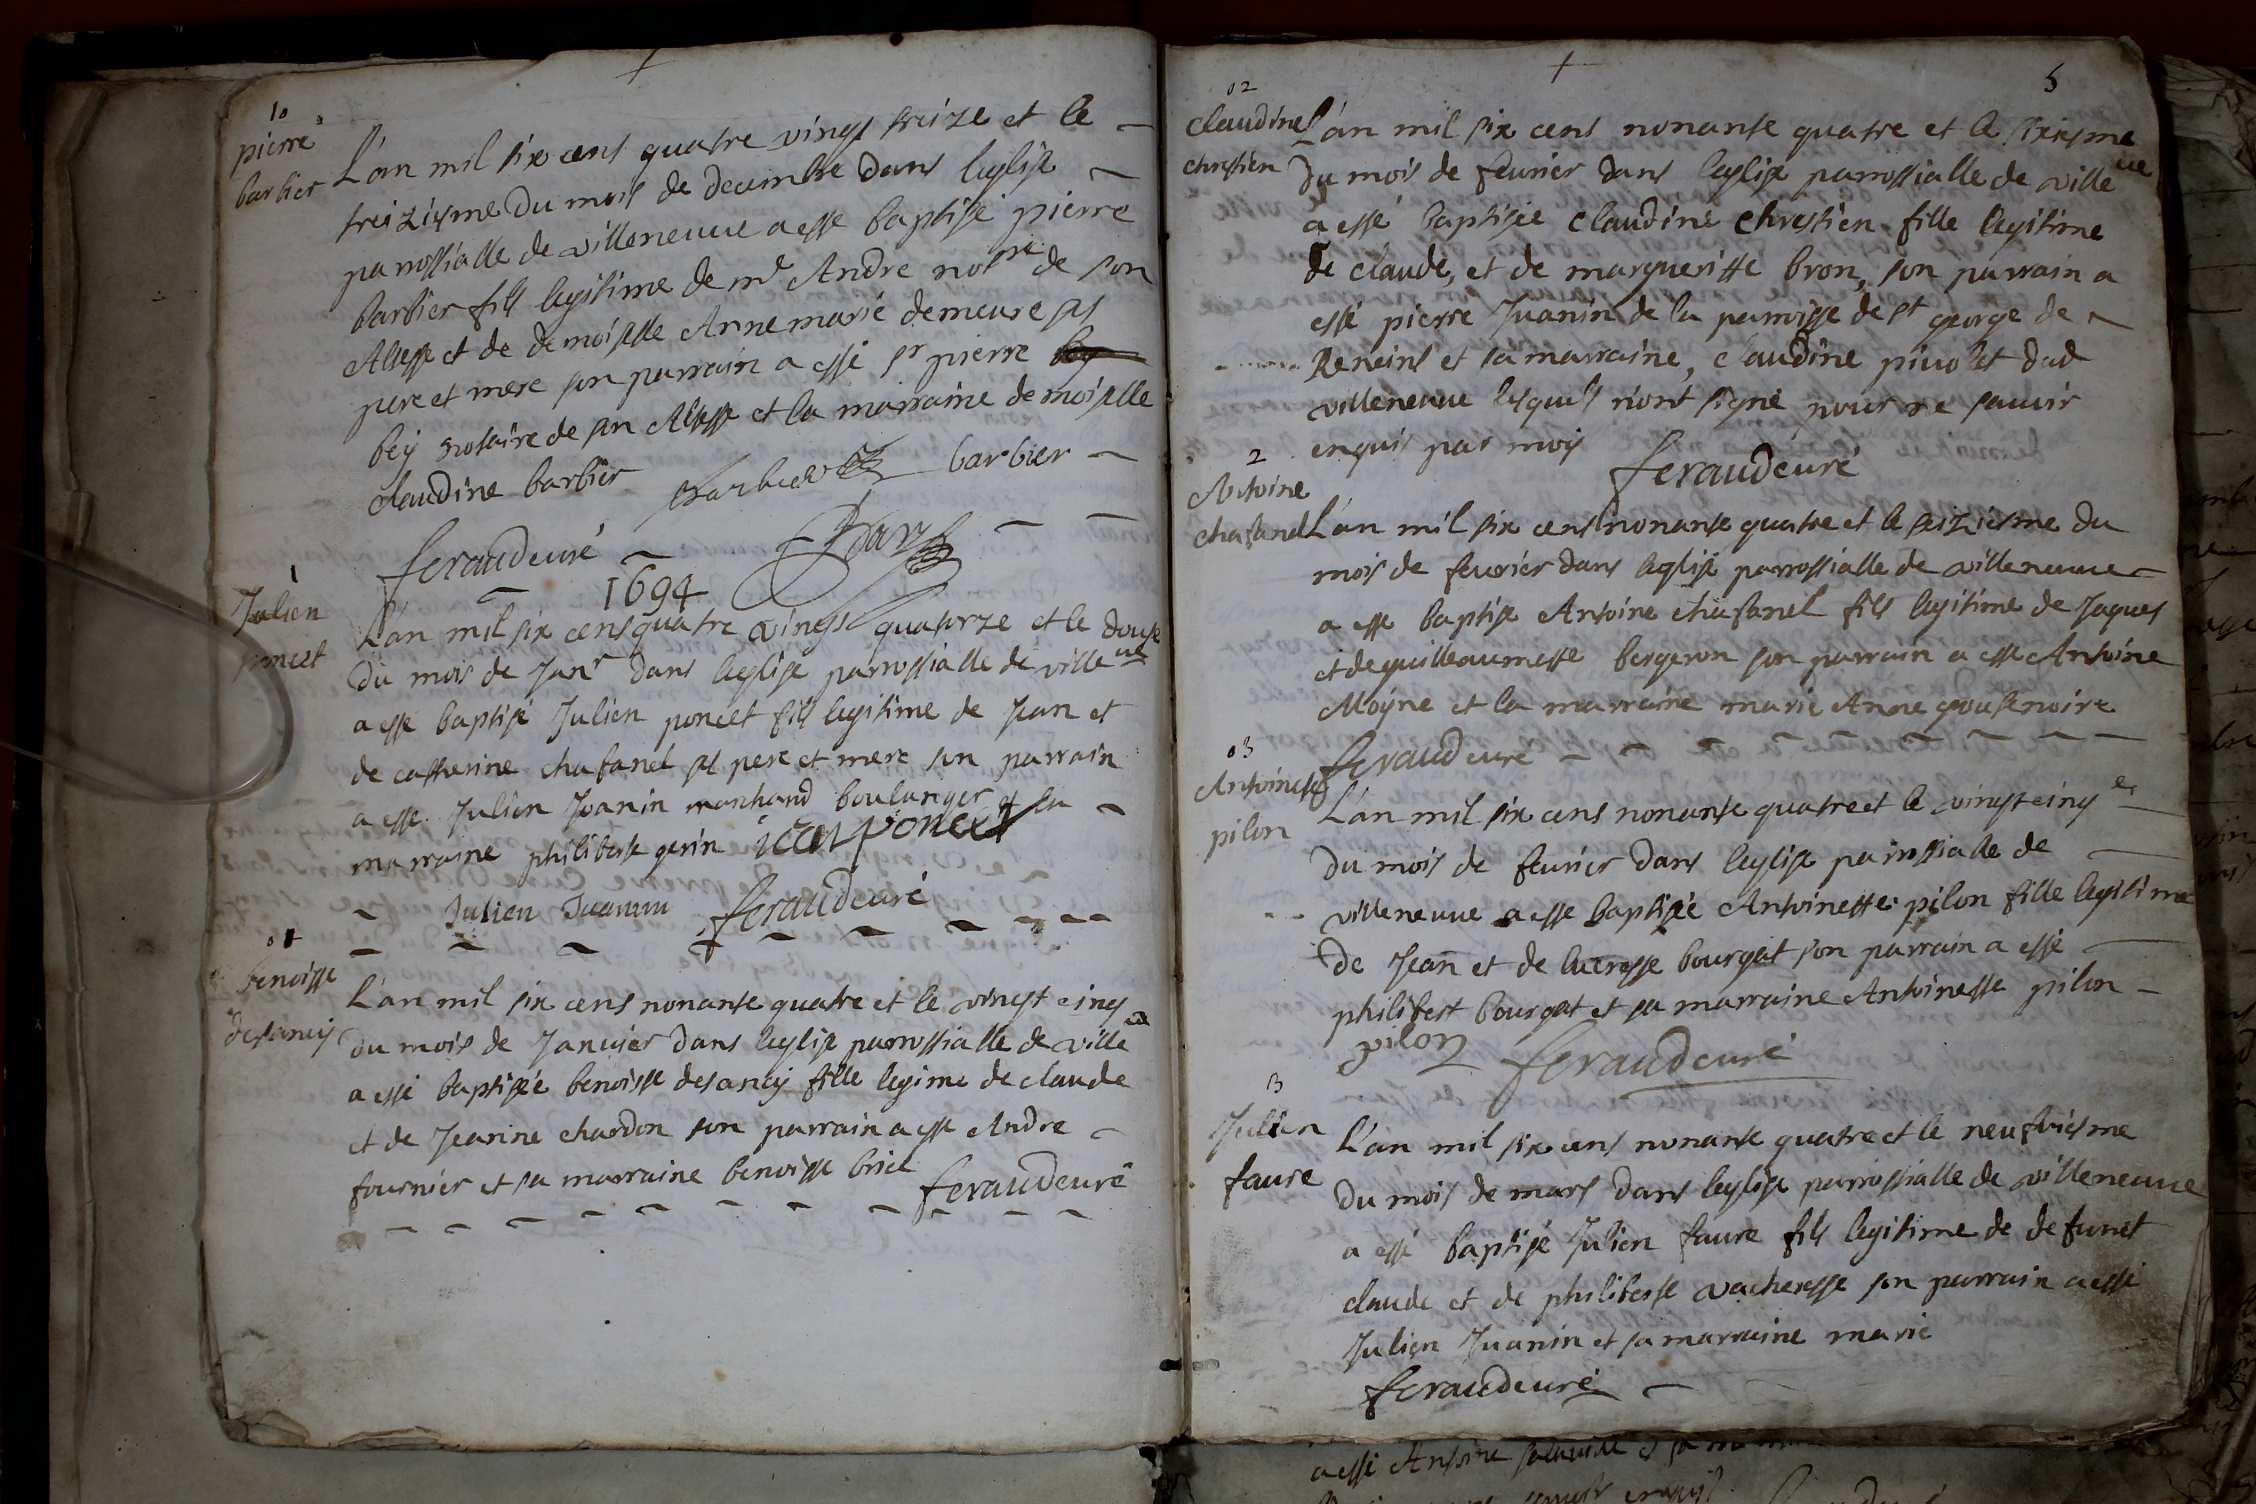 10
pierre
barbier
L'an mil six cens quatre vingt treize et le
treiziesme du mois de decembre dans leglise
parrossialle de villeneuve a esté baptisé pierre
barbier fils legitime de mr Andre notre de son
Altesse et de demoiselle Anne marie demeure ses
pere et mere son parrain a esté sr pierre
bey notaire de son Altesse et la marraine demoiselle
claudine barbier barbier barbier
feraud curé
1694
1
Julien
poncet
L'an mil six cens quatre vingt quatorze et le douse
du mois de Janr dans leglise parrossialle de villeve
a esté baptisé Julien poncet fils legitime de Jean et
de catherine chafanel ses pere et mere son parrain
a esté Julien Joanin marchand boulanger et la
marraine philiberte gerin iean poncet
Julien Juanin feraud curé
01
benoiste
desancy
L'an mil six cens nonante quatre et le vingt cinq
du mois de Janvier dans leglise parrossialle de villeve
a esté baptisée benoiste desancy fille legime de claude
et de Jeanne chardon son parrain a esté Andre
fournier et sa marraine benoiste briel
feraud curé
5
02
claudine
chrestien
L'an mil six cens nonante quatre et le sixiesme
du mois de fevrier dans leglise parrossialle de villeve
a esté baptisée claudine chrestien fille legitime
de claude, et de margueritte bron, son parrain a
esté pierre Juanin de la parroisse de st george de
Reneins et sa marraine, claudine pivolet dud
villeneuve lesquels n'ont signé pour ne savoir
enquis par moy
feraud curé
2
Antoine
chafanel
L'an mil six cens nonante quatre et le seiziesme du
mois de fevrier dans leglise parrossialle de villeneuve
a esté baptisé Antoine chafanel fils legitime de Jaques
et de guilleaumette bergeron son parrain a esté Antoine
Moyne et la marraine marie Anne goutenoire
feraud curé
03
Antoinette
pilon
L'an mil six cens nonante quatre et le vingt cinq
du mois de fevrier dans leglise parrossialle de
villeneuve a esté baptisée Antoinette pilon fille legitime
de Jean et de lucresse bourgat son parrain a esté
philibert bourgat et sa marraine Antoinette pilon
pilon feraud curé
3
Julien
faure
L'an mil six cens nonante quatre et le neufviesme
du mois de mars dans leglise parrossialle de villeneuve
a esté baptisé Julien faure fils legitime de defunct
claude et de philiberte vacheresse son parrain a esté
Julien Juanin et sa marraine marie
feraud curé
a esté Antoine